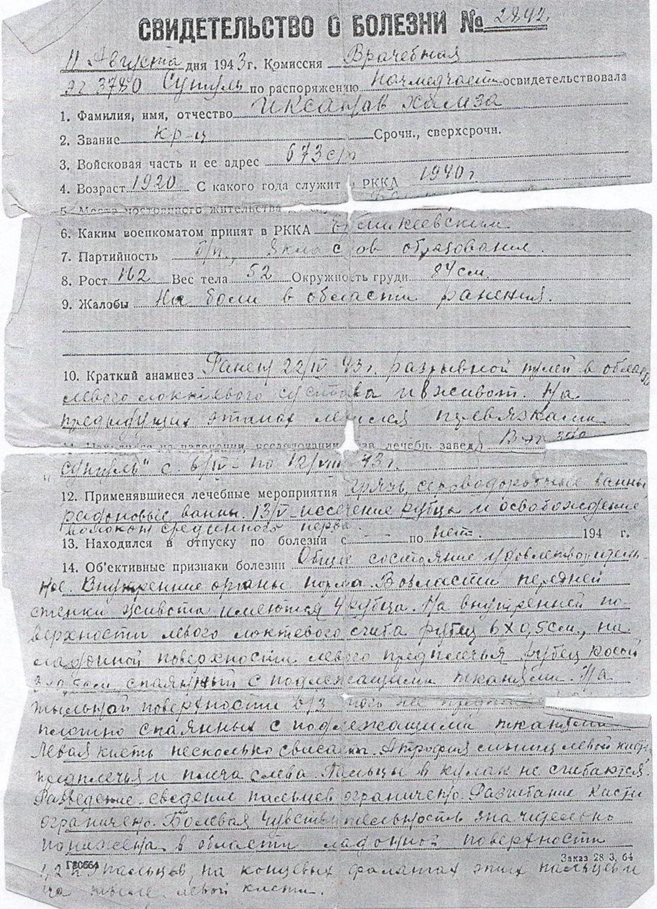 СВИДЕТЕЛЬСТВО О БОЛЕЗНИ № 2892.
11 Августа дня 1943г. Комиссия Врачебная
эг 3780 Сунгуль по распоряжению освидетельствовала
1. Фамилия, имя, отчество Иксанов Хамза
2. Звание кр-ц Срочн., сверхсрочн.
3. Войсковая часть и ее адрес 673 с/п
4. Возраст 1920 С какого года служит в РККА 1940 г
5. Место постоянного жительства
6. Каким военкоматом принят в РККА
7. Партийность б/п, образования.
8. Рост 162 Вес тела 52 Окружность груди 84 см.
9. Жалобы На боли в области ранения.
10. Краткий анамнез Ранен 22/ 43 г. разрывной пулей в област
левого локтевого сустава и в живот. На
предыдущих этапах лечился перевязками
лечебн. завед
"Сунгуль" с 6/ по 12/VIII 43 г.
12. Применявшиеся лечебные мероприятия грязь, сероводородные ванны
радоновые ванны. 13/ иссечение рубца и освобождение
срединного нерва
13. Находился в отпуску по болезни с по нет. 194 г.
14. Об'ективные признаки болезни Общее состояние удовлетворитель-
ное. Внутренние органы норма. В области передней
стенки живота имеются 4 рубца. На внутренней по-
верхности левого локтевого сгиба рубец 6 х 0,5 см., на
ладонной поверхности левого предплечья рубец косой
спаянный с подлежащими тканями. На
тыльной поверхности
плотно спаянных с подлежащими тканями
Левая кисть несколько свисает. Атрофия мышц левой кисти
предплечья и плеча слева. Пальцы в кулак не сгибаются.
Разведение, сведение пальцев ограничено. Разгибание кисти
ограничено. Болевая чувствительность значительно
понижена в области ладонной поверхности
Заказ 28 3, 64
пальцев, на концевых фалангах этих пальцев и
на тыле левой кисти.